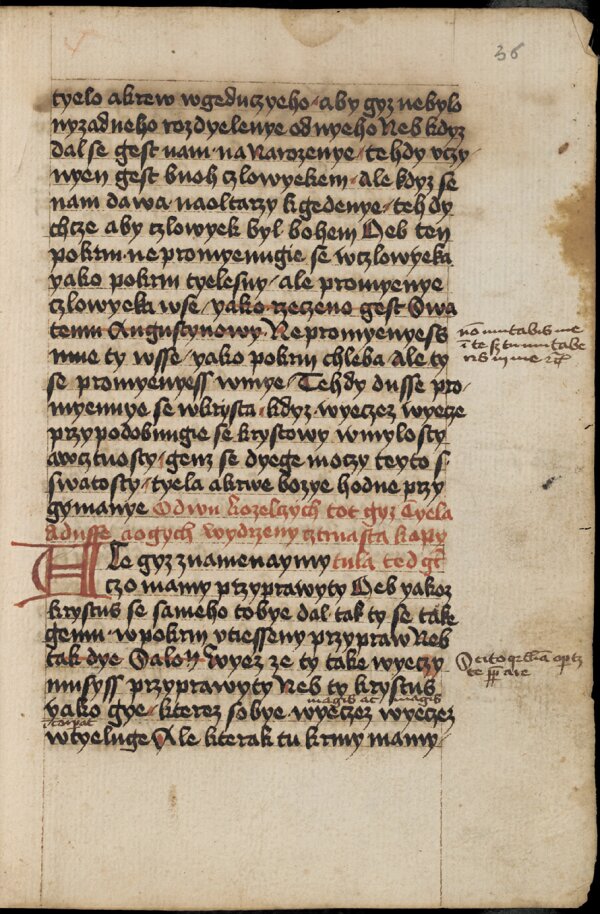 36
tyelo akrew wgeduczyeho aby gyz nebylo
nyzadneho rozdyelenye od nyeho Neb kdyz
dal se gest nam na Narozenye tehdy vczy
nyen gest buoh czlowyekem Ale kdyz se
nam dawa naoltarzy kgedenye tehdy
chcze aby czlowyek byl bohem Neb ten
pokrm nepromyenugie se wczlowyeka
yako pokrm tyelesny ale promyenye
czlowyeka wse yako rzeczeno gest Swa
temu Augustynowy Nepromyenyess
mne ty wsse yako pokrm chleba Ale ty
se promyenyess wmye Tehdy dusse pro
myenuye se wkrysta kdyz wyeczez wyecze
przypodobnugie se krystowy wmylosty
awcztnosty genz se dyege moczy teyto s
swatosty tyela akrwe bozye hodne przy
gymanye Odwu kozelczych tot gyz Tyela
Adusse aogych wydrzeny cztrnasta kapy
Ale gyz znamenaymy tula ted
czo mamy przyprawyty Neb yakoz
krystus se sameho tobye dal tak ty se take
gemu wpokrm vtiesseny przypraw Neb
tak dye Salon Wyez ze ty take wyeczy
musyss przyprawyty Neb ty krystus
yako gye kterez sobye wyeczez wyeczez
wtyeluge Ale kterak tu krmy mamy
non mutabis me
in te sed tu mutabe
ris in me
Scito
te pparare
magis ac magis